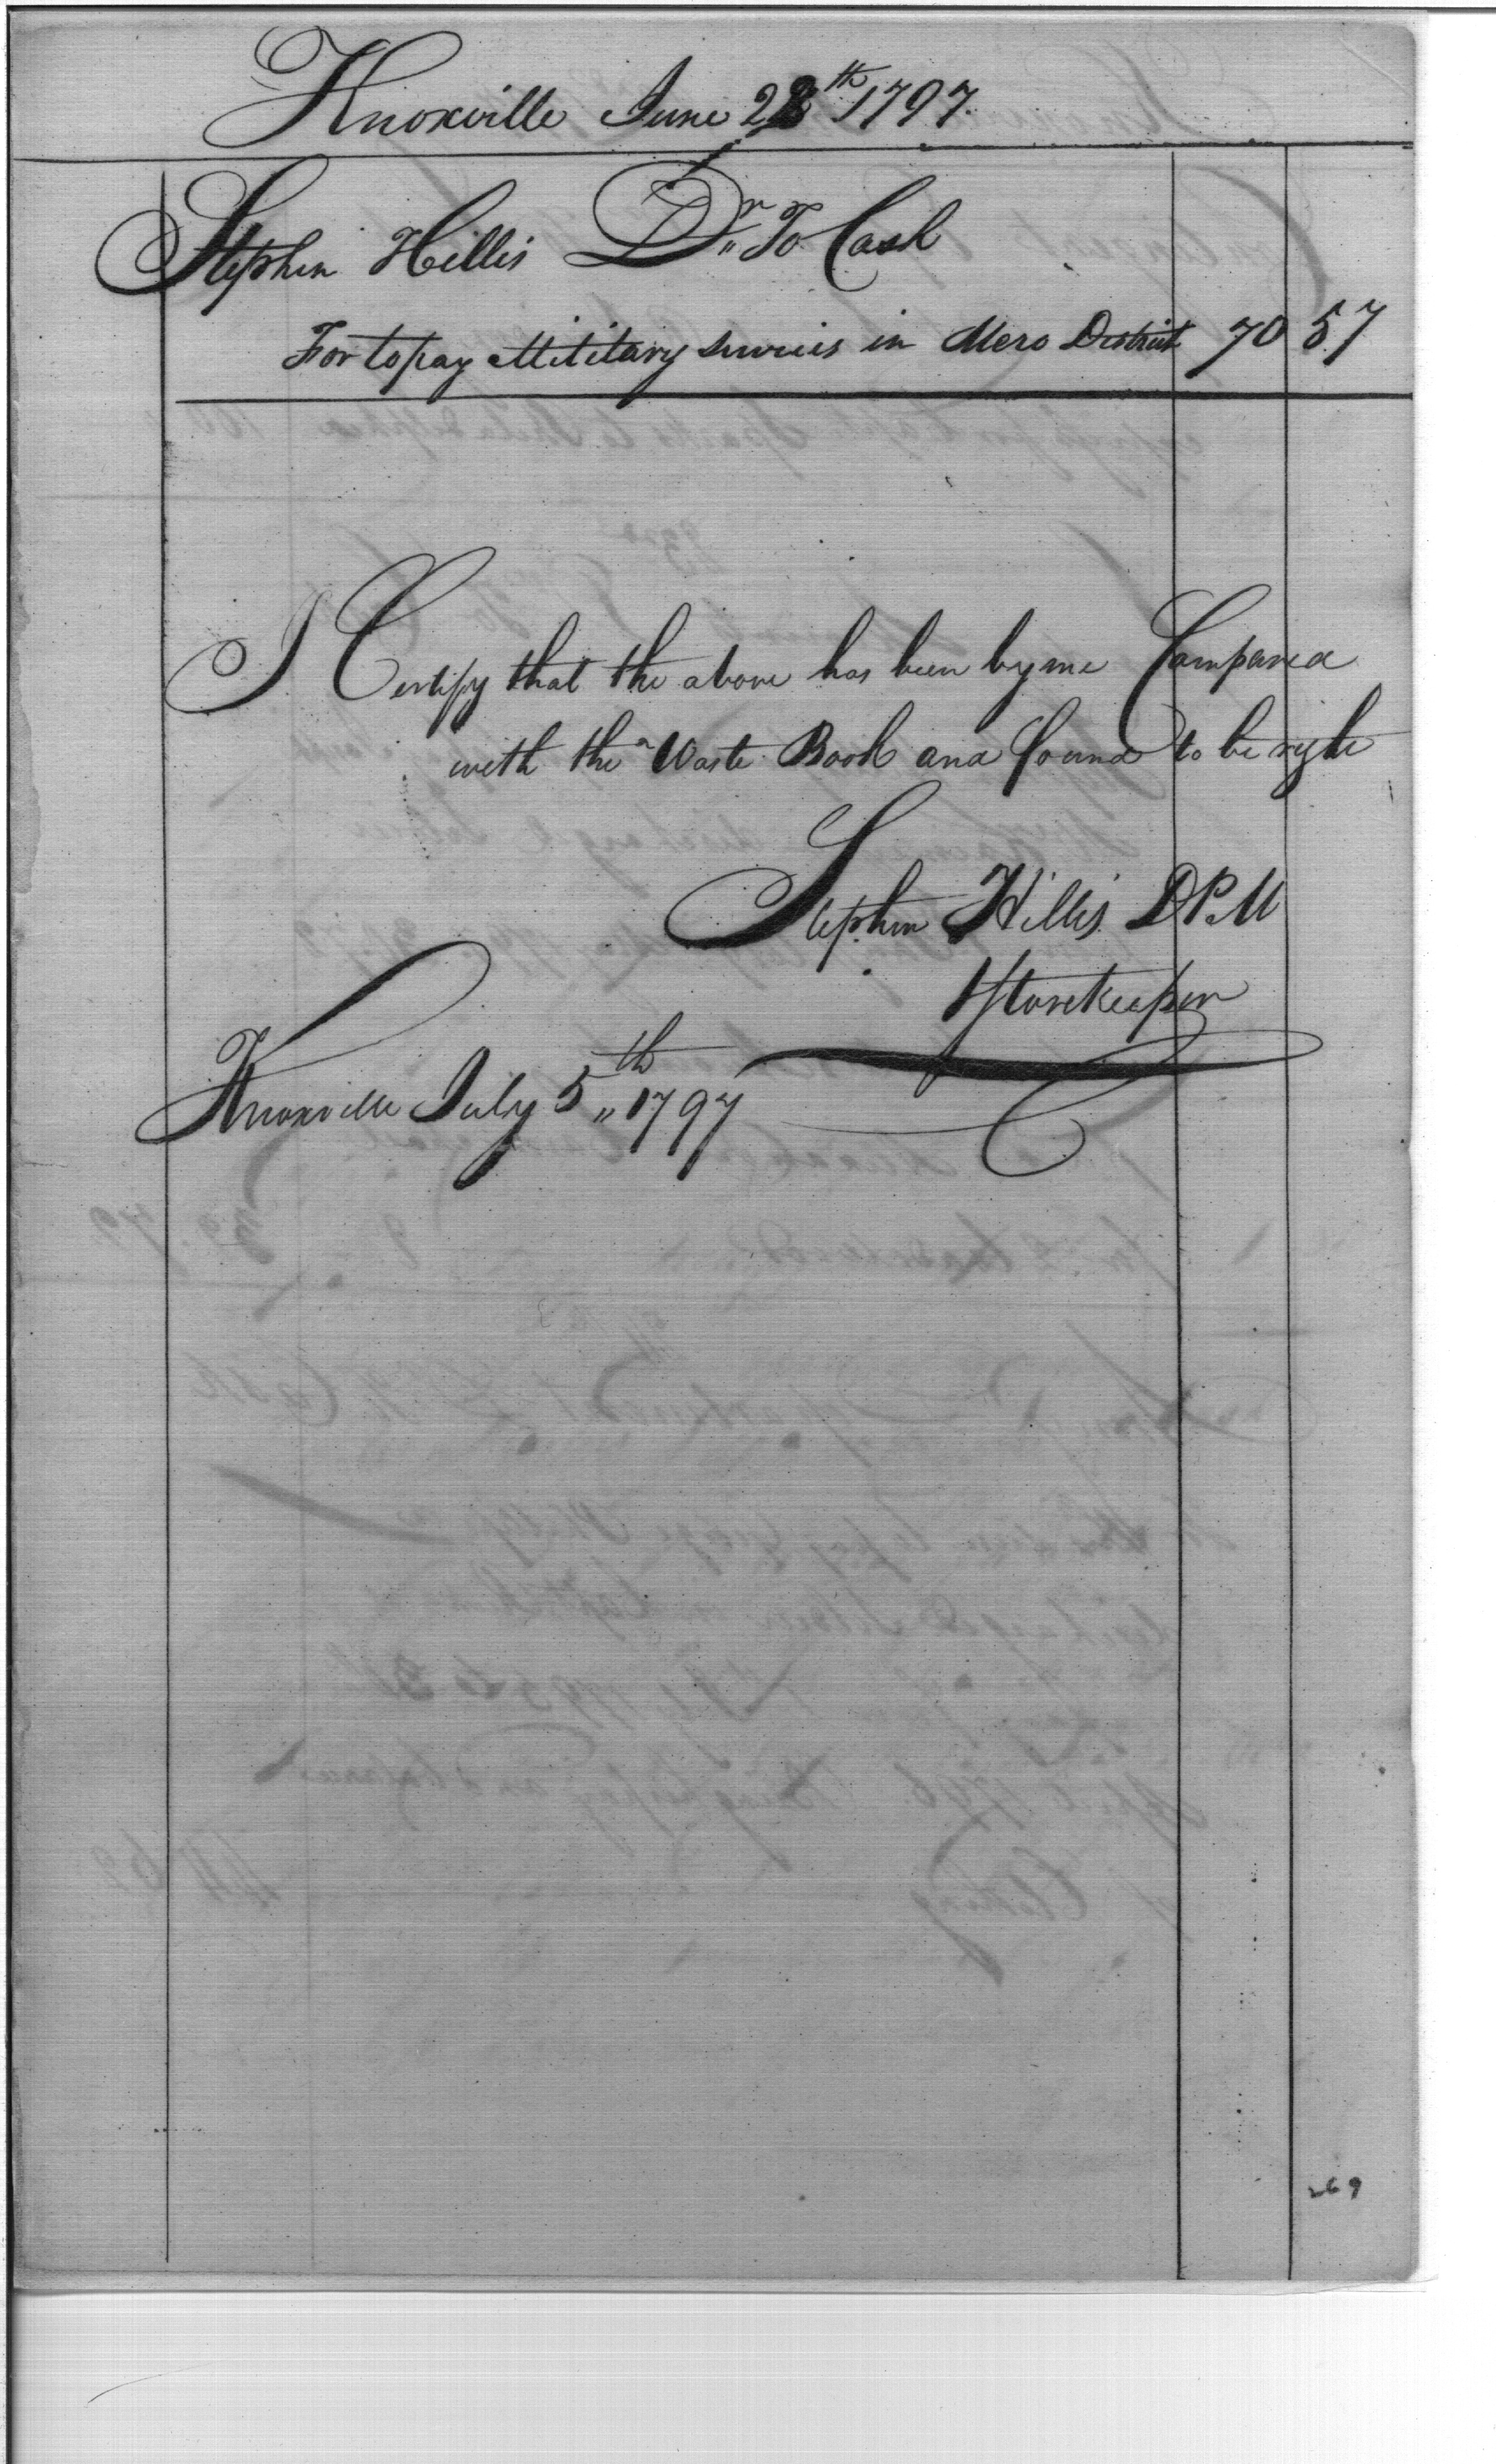 Knoxville June 28th 1797.
Stephen Hillis Dr. To Cash
For to pay Military services in Mero District 70 57
I Certify that the above has been by me Compared
with the Waste Book and found to be right
Stephen Hillis D P. M
Storekeeper
Knoxville July 5th 1797
269